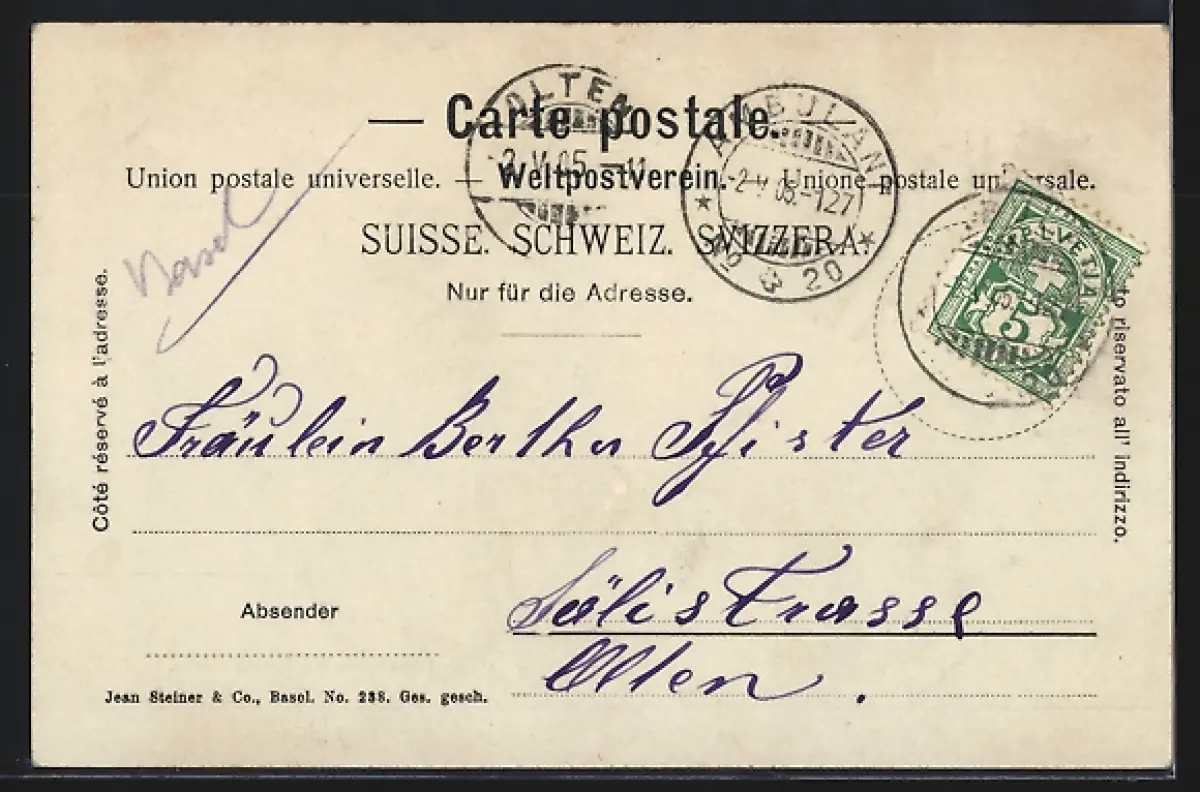 — Carte postale.
Union postale universelle. — Weltpostverein. — Unione postale universale.
SUISSE. SCHWEIZ. SVIZZERA.
Nur für die Adresse.
OLTEN
2.V.05.-11
AMBULANT
-2.V.05.-127
No 20
HELVETIA
5
Basel
Côté réservé à l'adresse.
riservato all' indirizzo.
Fräulein Bertha Pfister
Sälistrasse
Olten.
Absender
Jean Steiner & Co., Basel. No. 238. Ges. gesch.